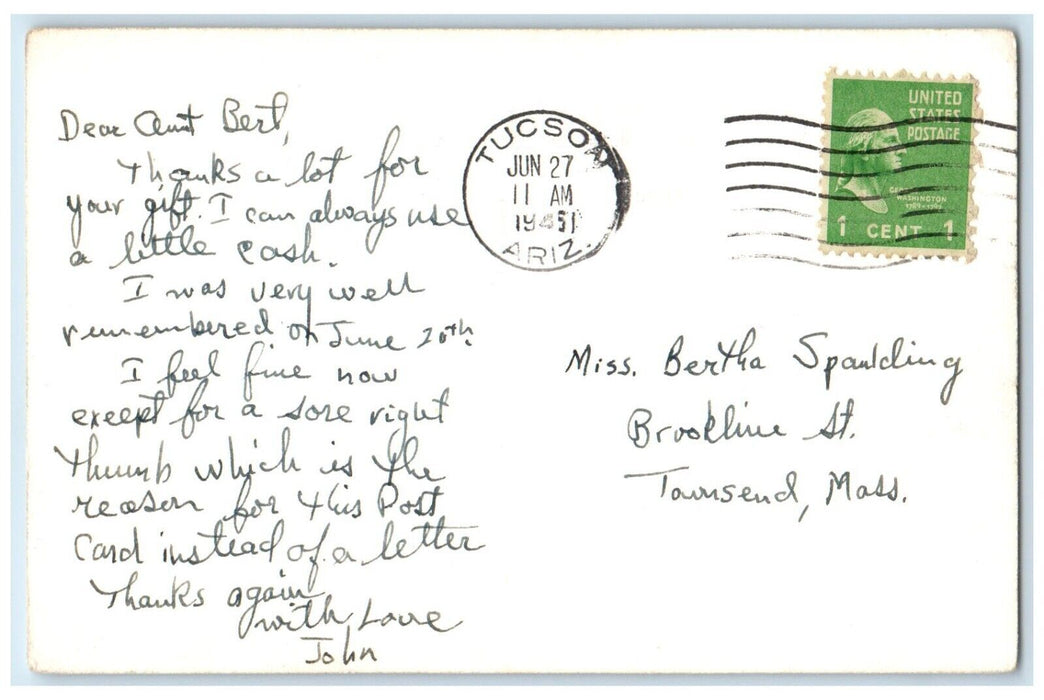 Dear Aunt Bert,
Thanks a lot for
your gift. I can always use
a little cash.
I was very well
remembered on June 20th.
I feel fine now
except for a sore right
thumb which is the
reason for this Post
Card instead of a letter
Thanks again
with Love
John
TUCSON
JUN 27
11 AM
ARIZ.
UNITED
STATES
POSTAGE
WASHINGTON
1 CENT 1
Miss. Bertha Spaulding
Brookline St.
Townsend, Mass.